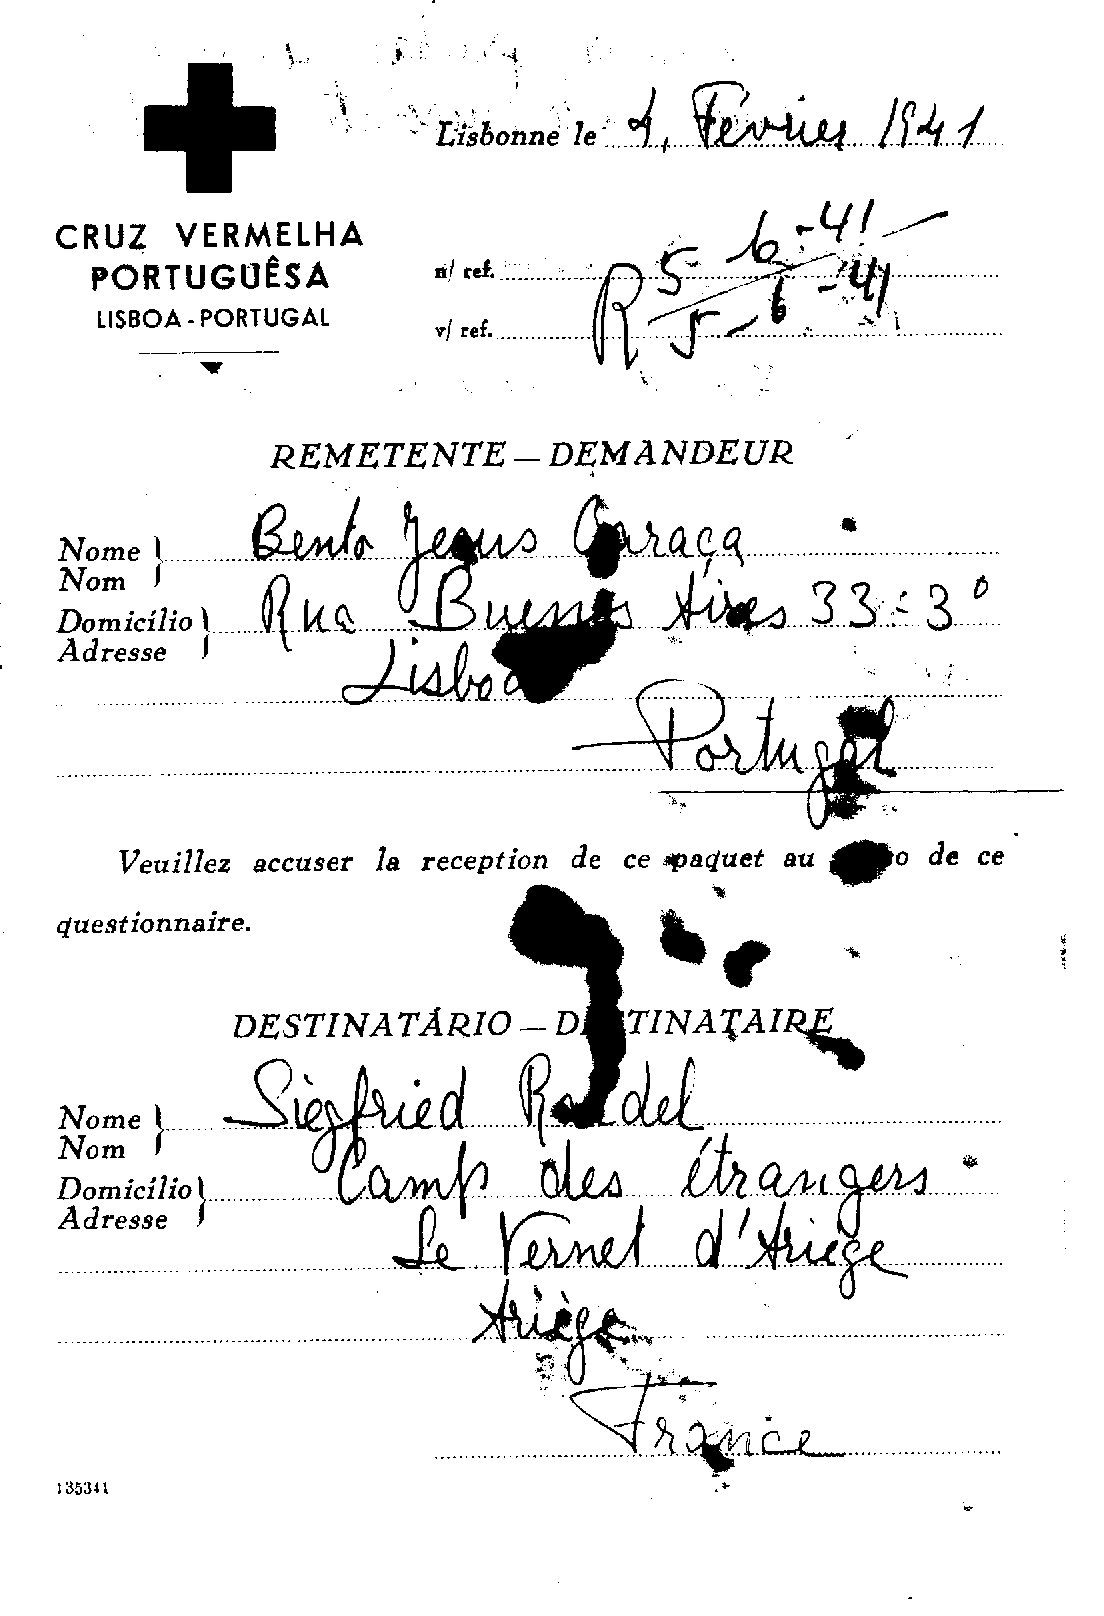 Lisbonne le 4, Février 1941
CRUZ VERMELHA
PORTUGUÊSA
LISBOA - PORTUGAL
n/ ref.
v/ ref.
R 5-6-41
5-6-41
REMETENTE — DEMANDEUR
Nome
Nom
Bento Jesus Caraça
Domicílio
Adresse
Rua Buenos Aires 33-3º
Lisboa
Portugal
Veuillez accuser la reception de ce paquet au de ce
questionnaire.
DESTINATÁRIO — DESTINATAIRE
Nome
Nom
Siegfried
Domicílio
Adresse
Camp des étrangers
Le Vernet d'Ariège
Ariège
France
135341